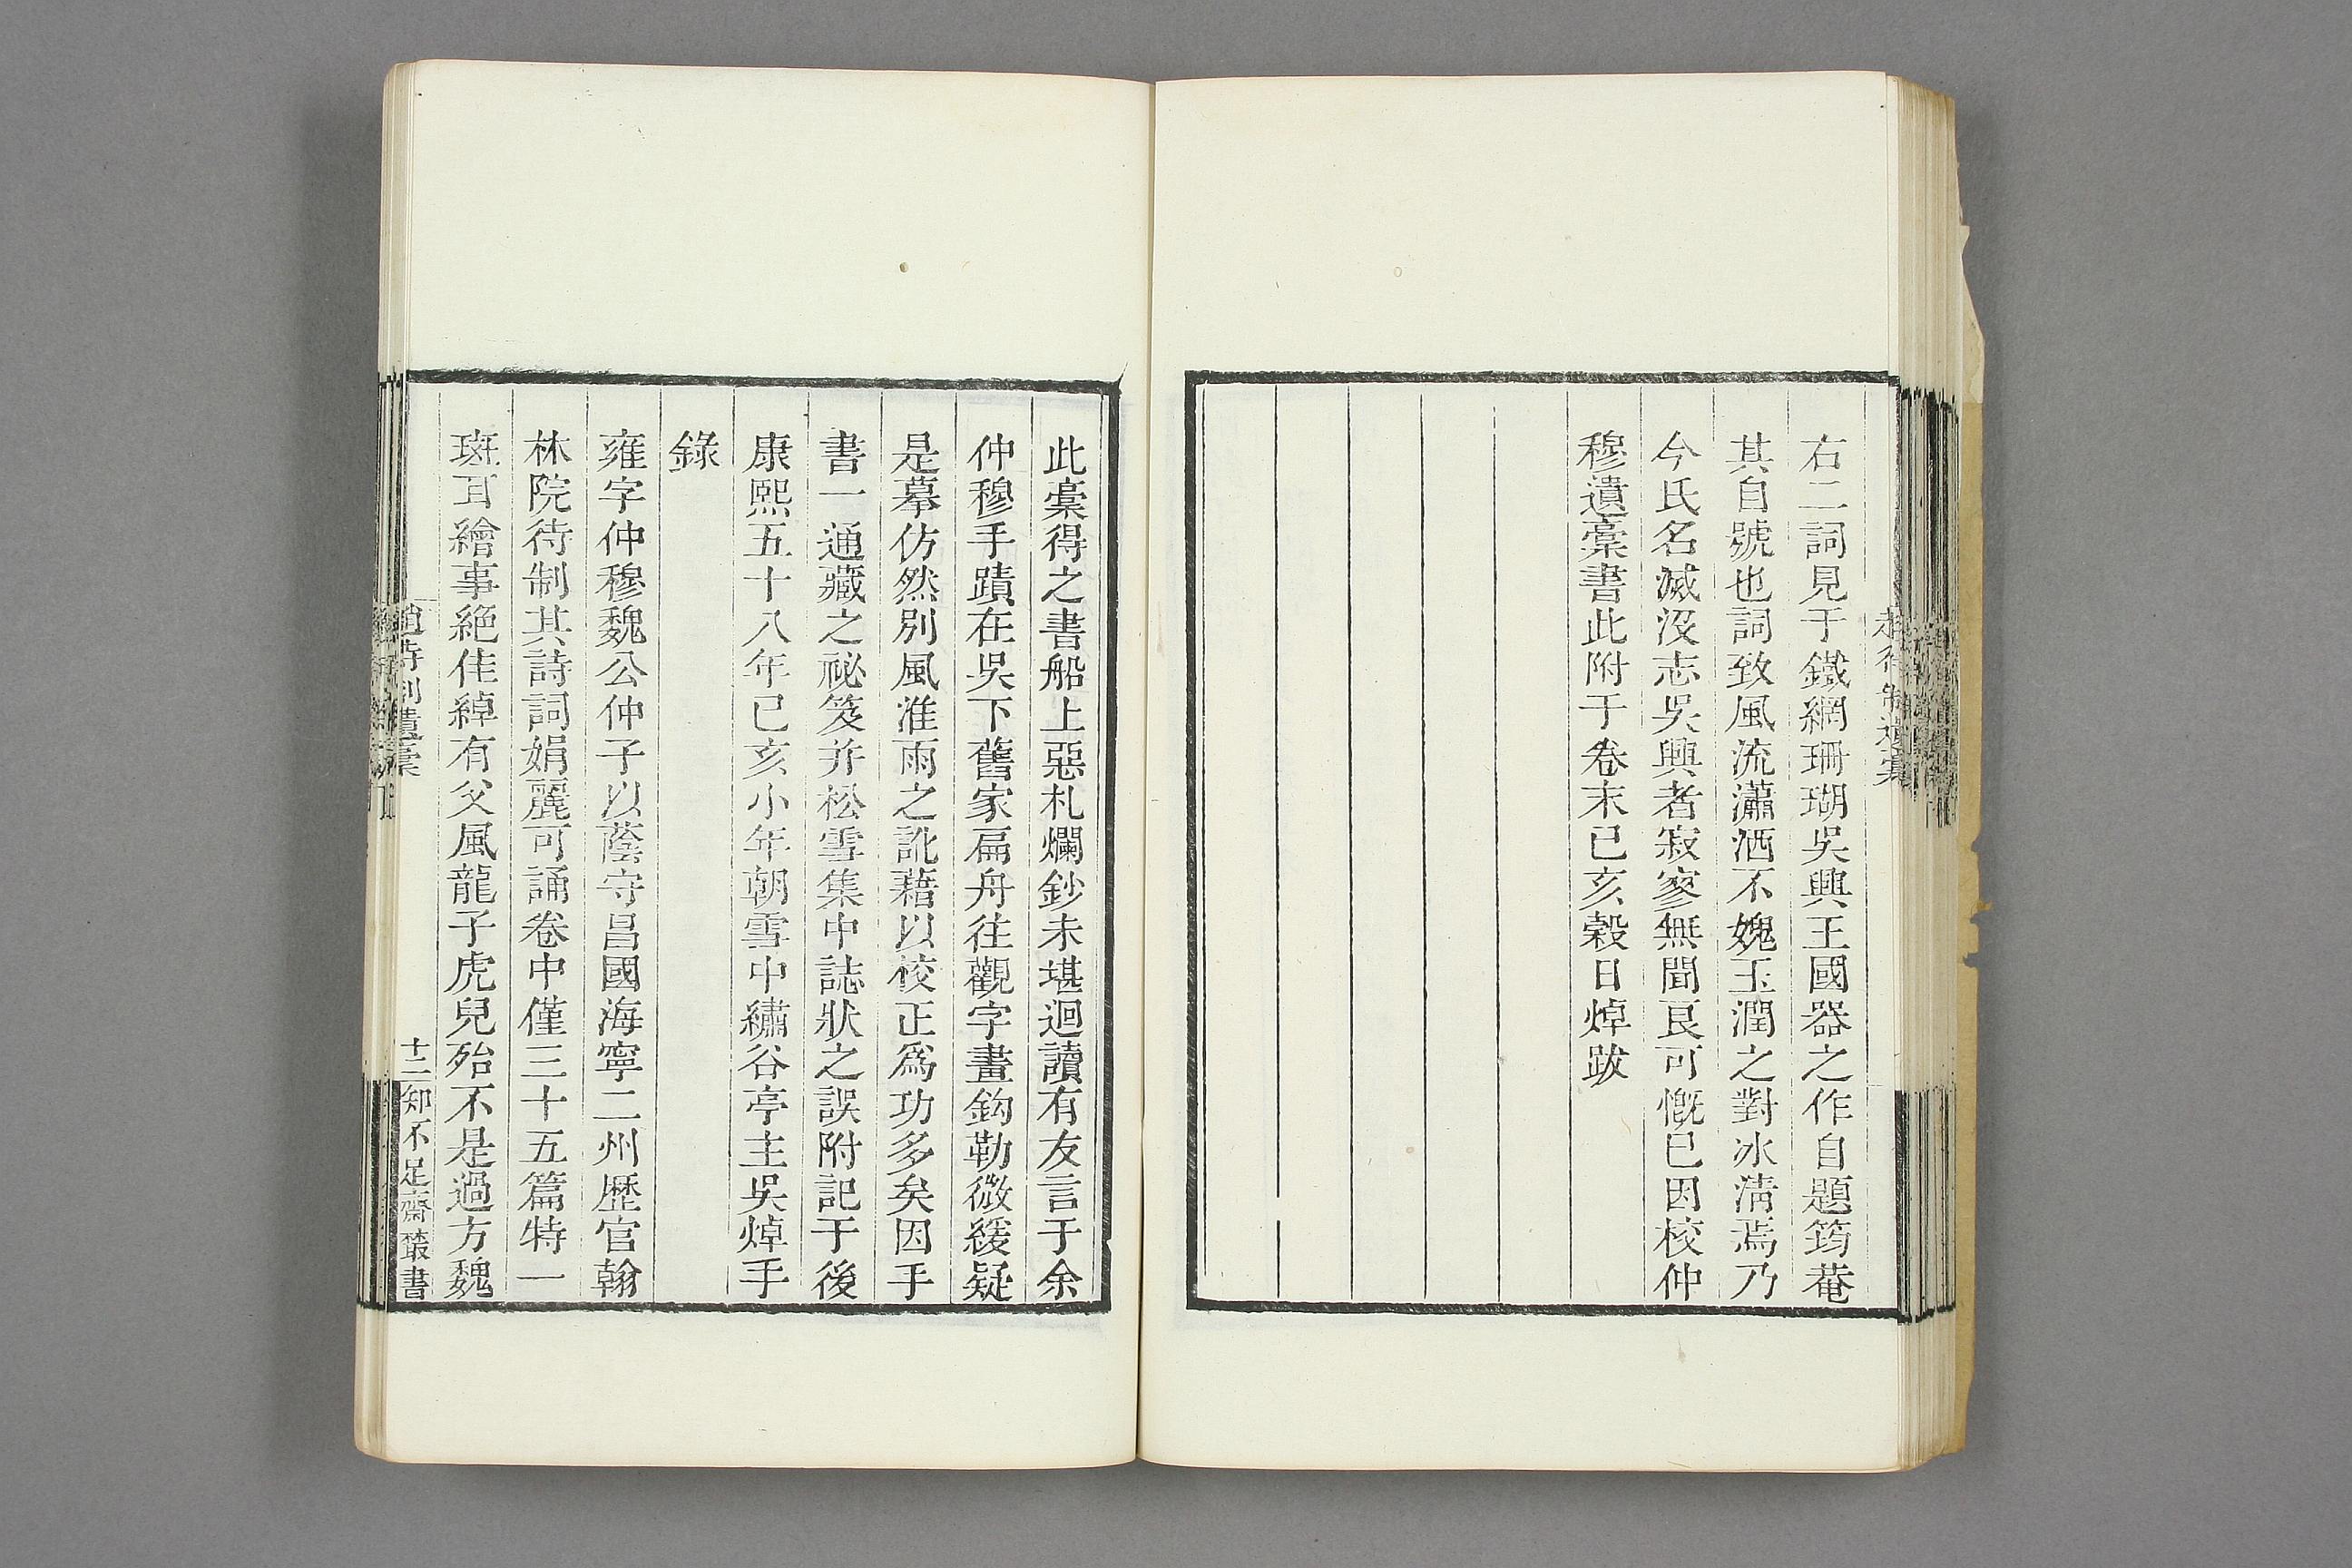 右二詞見于鐵網珊瑚吳興王國器之作自題筠菴
其自號也詞致風流瀟洒不媿玉潤之對冰清焉乃
今氏名滅沒志吳興者寂寥無聞良可慨已因校仲
穆遺稾書此附于卷末已亥穀日焯跋
此稾得之書船上惡札爛鈔未堪迴讀有友言于余
仲穆手蹟在吳下舊家扁舟往觀字畫鈎勒微緩疑
是摹仿然別風淮雨之訛藉以校正為功多矣因手
書一通藏之祕笈并松雪集中誌狀之誤附記于後
康熙五十八年已亥小年朝雪中繡谷亭主吳焯手
錄
雍字仲穆魏公仲子以蔭守昌國海寧二州歷官翰
林院待制其詩詞娟麗可誦卷中僅三十五篇特一
斑耳繪事絕佳綽有父風龍子虎兒殆不是過方魏
趙待制遺稾
十二
知不足齋叢書